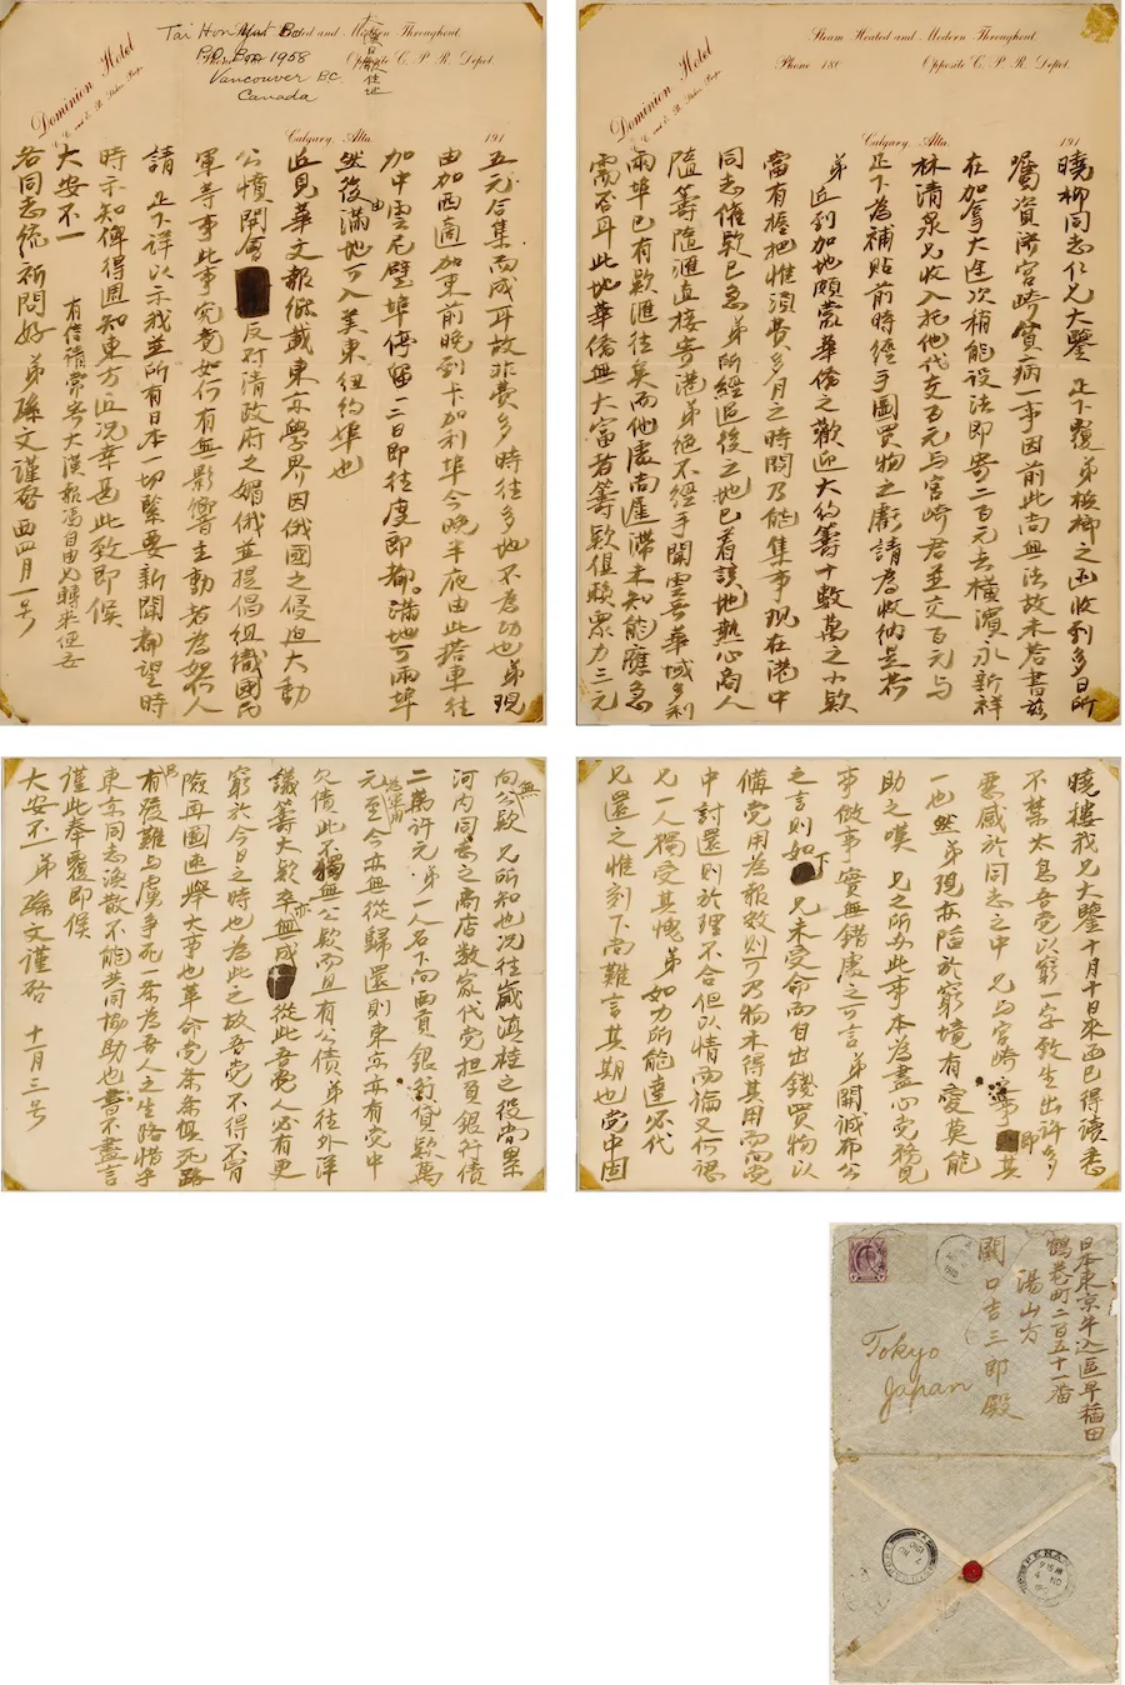 Dominion Hotel
Steam Heated and Modern Throughout.
Phone 180 Opposite C. P. R. Depot.
Calgary, Alta. 191
曉柳同志仁兄大鑒 足下覆弟檳榔之函收到多日所
囑資濟宮崎貧病一事因前此尚無法故未答書茲
在加拿大途次稍能設法即寄二百元去橫濱永新祥
林清泉兄收入托他代支百元与宮崎君並交百元与
足下為補貼前時經手圖買物之虧請為收納是荷
弟近到加地頗蒙華僑之歡迎大約籌十數萬之小款
當有握把惟須費多月之時間乃能集事現在港中
同志催款已急弟所經過後之地已着該地熱心商人
隨籌隨滙直接寄港弟絕不經手聞雲哥華域多利
兩埠已有款滙往矣而他處尚遲滯未知能應急
需否耳此地華僑無大富者籌款俱賴眾力三元
Dominion Hotel
Heated and Modern Throughout.
Opposite C. P. R. Depot.
Tai Hon Yat Bo
P.O. Box 1958
Vancouver B.C.
Canada
Calgary, Alta. 191
五元合集而成耳故非費多時往多地不為功也弟現
由加西適加東前晚到卡加利埠今晚半夜由此搭車往
加中雲尼辟埠停留一二日即往度即都。滿地可兩埠
然後由滿地可入美東紐約埠也
近見華文報紙載東京學界因俄國之侵迫大動
公憤開會反對清政府之媚俄並提倡組織國民
軍等事此事究竟如何有無影響主動者為如何人
請 足下詳以示我並所有日本一切緊要新聞都望時
時示知俾得週知東方近况幸甚此致即候
大安不一 有信請常寄大漢報馮自由收轉來便妥
各同志統祈問好 弟孫文謹啓西四月一号
曉樓我兄大鑒十月十日來函已得讀悉
不禁太息吾党以窮一字致生出許多
惡感於同志之中 兄与宮崎 事即其
一也然弟現亦陷於窮境有愛莫能
助之嘆 兄之所為此事本為盡心党務見
事做事實無錯處之可言 弟開誠布公
之言則如下 兄未受命而自出錢買物以
備党用為報效則可乃物未得其用而向党
中討還則於理不合但以情而論又何忍
兄一人獨受其愧 弟如力所能達必代
兄還之惟刻下尚難言其期也党中固
向無公款 兄所知也况往歲滇桂之役尚累
河内同志之商店數家代党担負銀行債
二萬許元 弟一人名下向西貢銀行貸款萬
元為軍用至今亦無從歸還則東京亦有党中
欠債此不獨無公款而且有公債 弟往外洋
議籌大款亦卒無成 從此吾党人必有更
窮於今日之時也為此之故吾党不得不冒
險再圖速舉大事也革命党条条俱死路
只有發難与虜爭死一条為吾人之生路惜乎
東京同志渙散不能共同協助也書不盡言
謹此奉覆即候
大安不一 弟 孫文謹啓 十一月三号
日本東京牛込區早稲田
鶴巻町二百五十一番
湯山方
關口吉三郎殿
Tokyo
Japan
PENANG